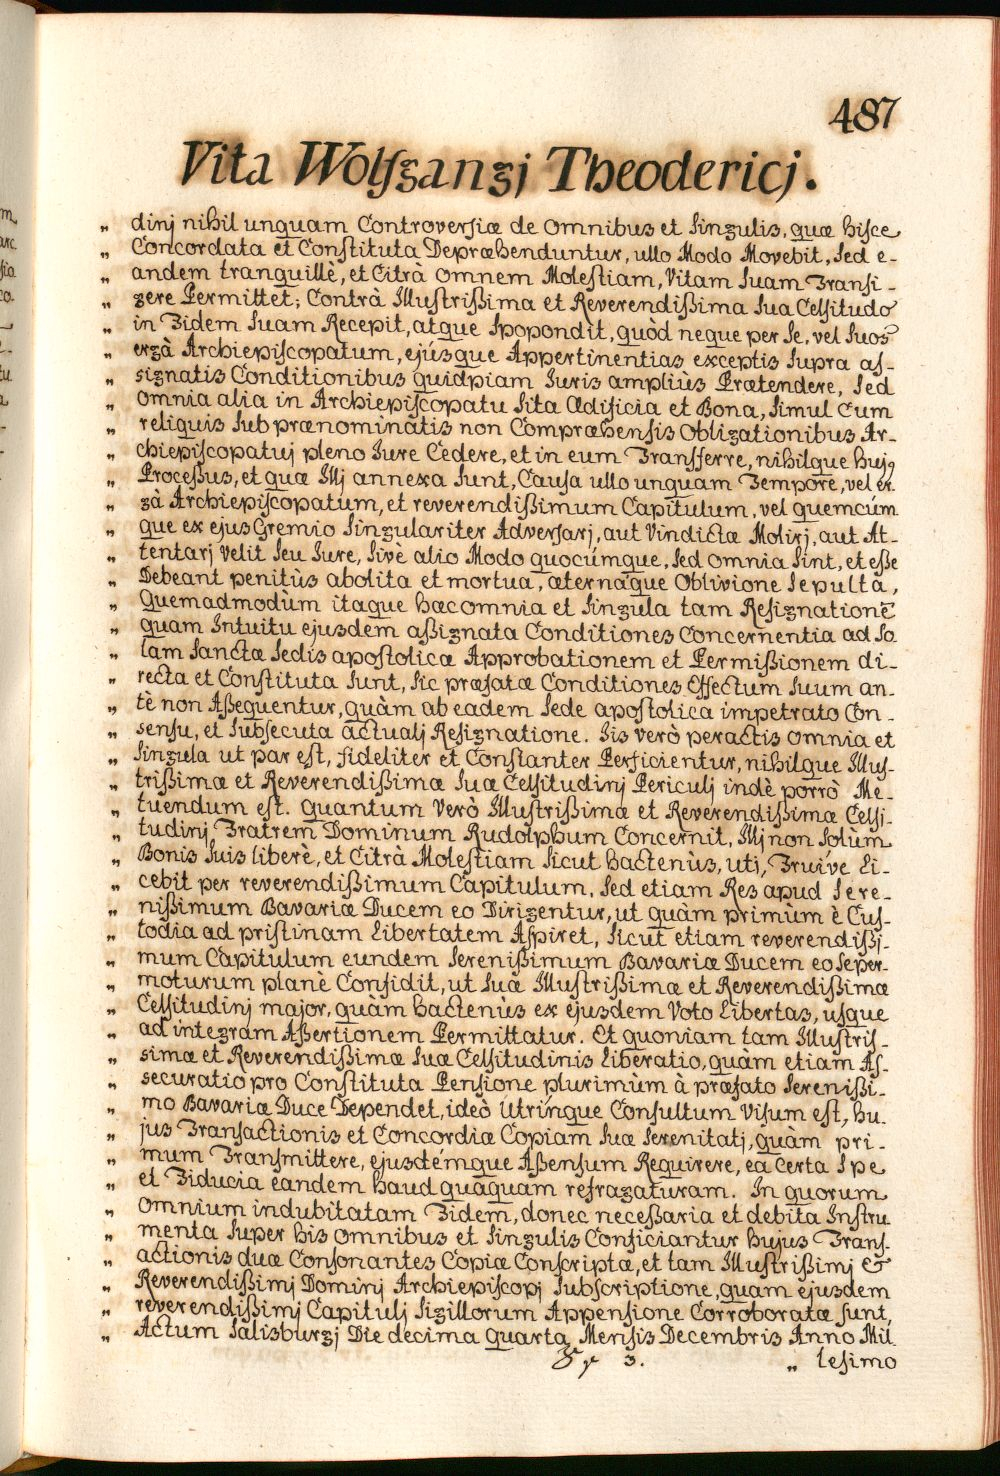 487
Vita Wolfgangj Theodericj.
„ dinj nihil unquam Controversiæ de omnibus et singulis, quæ hisce
„ Concordata et Constituta Depræhenduntur, ullo Modo Movebit, sed e-
„ andem tranquillè, et Citrà omnem Molestiam, Vitam suam Transi-
„ gere Permittet; Contrà Illustrißima et Reverendißima sua Celsitudo
„ in Fidem suam Recepit, atque spopondit, quòd neque per se, vel suos
„ ergà Archiepiscopatum, ejúsque Appertinentias exceptis supra as-
„ signatis Conditionibus quidpiam Iuris ampliùs Prætendere, sed
„ omnia alia in Archiepiscopatu sita Ædificia et Bona, simul Cum
„ reliquis sub prænominatis non Compræhensis Obligationibus Ar-
„ chiepiscopatuj pleno Iure Cedere, et in eum Transferre, nihilque hujꝰ
„ Proceßus, et quæ Illj annexa sunt, Causa ullo unquam Tempore, vel er
„ gà Archiepiscopatum, et reverendißimum Capitulum, vel quemcúm
„ que ex ejus Gremio singulariter Adversarj, aut Vindictæ Molirj, aut At-
„ tentarj velit seu Iure, sivè alio Modo quocúmque, sed omnia sint, et eße
„ Debeant penitùs abolita et mortua, æternáque Oblivione sepulta,
„ Quemadmodùm itaque hæc omnia et singula tam Resignationē
„ quam Intuitu ejusdem aßignata Conditiones Concernentia ad so
„ lam sanctæ sedis apostolicæ Approbationem et Permißionem di-
„ recta et Constituta sunt, sic præfatæ Conditiones Effectum suum an-
„ tè non Aßequentur, quàm ab eadem sede apostolica impetrato Con-
„ sensu, et subsecuta actualj Resignatione. His verò peractis omnia et
„ singula ut par est, fideliter et Constanter Perficientur, nihilque Illus-
„ trißimæ et Reverendißimæ suæ Celsitudinj Periculj indè porrò Me-
„ tuendum est. Quantum Verò Illustrißimæ et Reverendißimæ Celsi-
„ tudinj Fratrem Dominum Rudolphum Concernit, Illj non solùm
„ Bonis suis liberè, et Citrà Molestiam sicut hactenùs, uti, Fruíve li-
„ cebit per reverendißimum Capitulum, sed etiam Res apud sere-
„ nißimum Bavariæ Ducem eo Dirigentur, ut quàm primùm è Cus-
„ todia ad pristinam libertatem Aspiret, sicut etiam reverendißi-
„ mum Capitulum eundem serenißimum Bavariæ Ducem eo seper-
„ moturum planè Confidit, ut suæ Illustrißimæ et Reverendißimæ
„ Celsitudinj major, quàm hactenùs ex ejusdem Voto libertas, usque
„ ad integram Aßertionem Permittatur. Et quoniam tam Illustris-
„ simæ et Reverendißimæ suæ Celsitudinis liberatio, quàm etiam As-
„ securatio pro Constituta Pensione plurimùm à præfato serenißi-
„ mo Bavariæ Duce Dependet, ideò utrinque Consultum Visum est, hu-
„ jus Transactionis et Concordiæ Copiam suæ serenitatj, quàm pri-
„ mum Transmittere, ejusdémque Aßensum Requirere, ea certa spe
„ et Fiducia eandem haud quaquam refragaturam. In quorum
„ omnium indubitatam Fidem, donec neceßaria et debita Instru
„ menta super his omnibus et singulis Conficiantur hujus Trans-
„ actionis duæ Consonantes Copiæ Conscriptæ, et tam Illustrißimj &
„ Reverendißimj Dominj Archiepiscopj subscriptione, quam ejusdem
„ reverendißimj Capitulj sigillorum Appensione Corroboratæ sunt,
„ Actum salisburgj Die decima quarta Mensis Decembris Anno Mil-
3.
„ lesimo